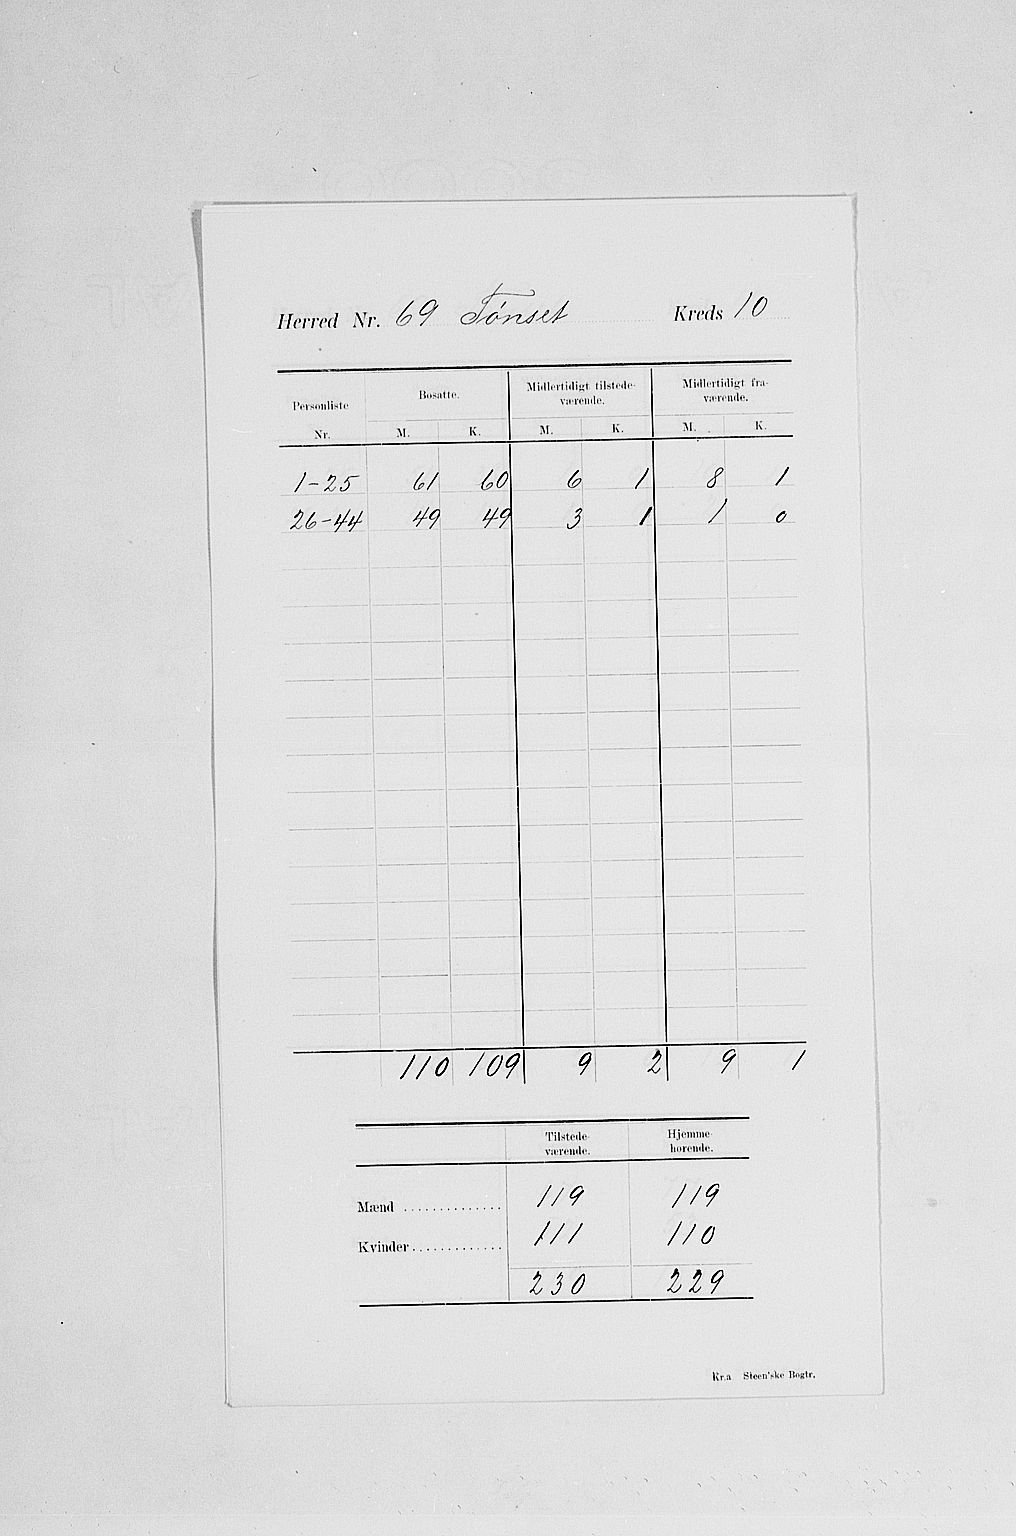 Herred Nr. 69 Tønset Kreds 10
Personliste Nr. Bosatte. Midlertidigt tilstede- værende. Midlertidigt fra- værende.
M. K. M. K. M. K.
1-25 61 60 6 1 8 1
26-44 49 49 3 1 1 0
110 109 9 2 9 1
Tilstede- værende. Hjemme- hørende.
Mænd .............. 119 119
Kvinder ............. 111 110
230 229
Kr.a Steen'ske Bogtr.